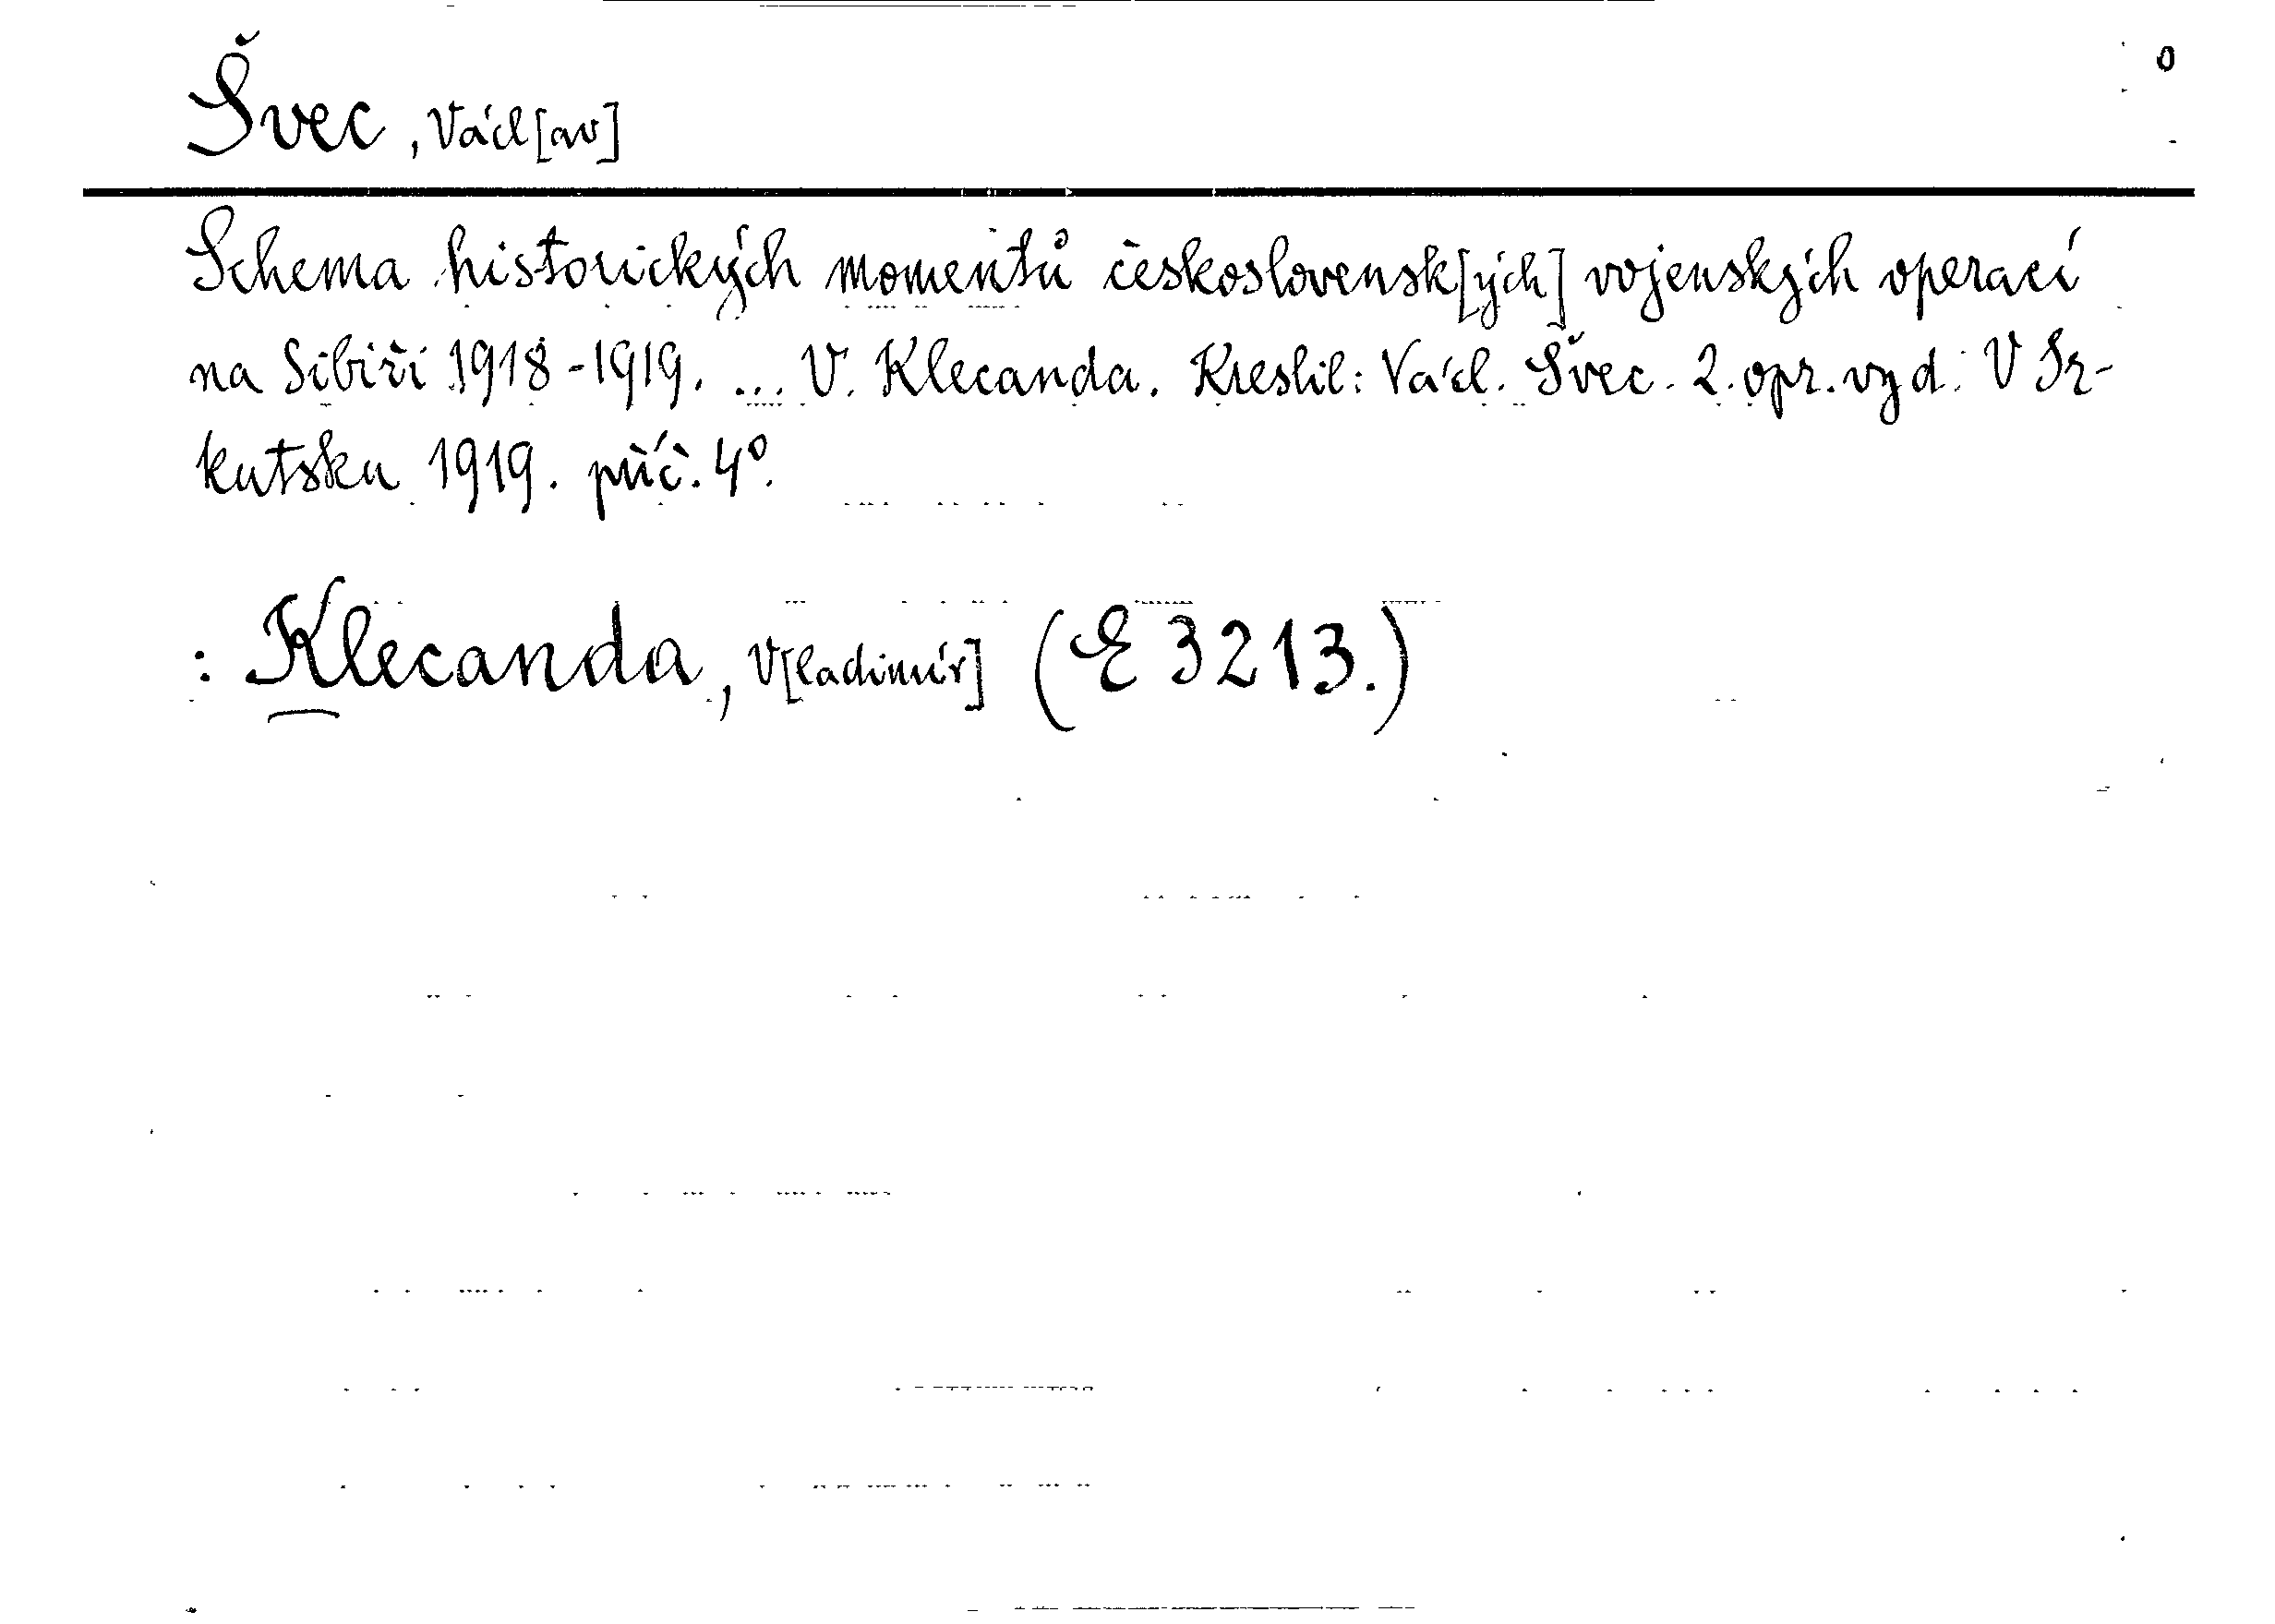 0
Švec, Václ[av]
Schema historických momentů československ[ých] vojenských operací
na Sibiři 1918-1919. ... V. Klecanda. Kreslil: Václ. Švec. 2. opr. vyd. V Ir-
kutsku 1919. příč. 4°.
: Klecanda, V[ladimír] (E 3213.)